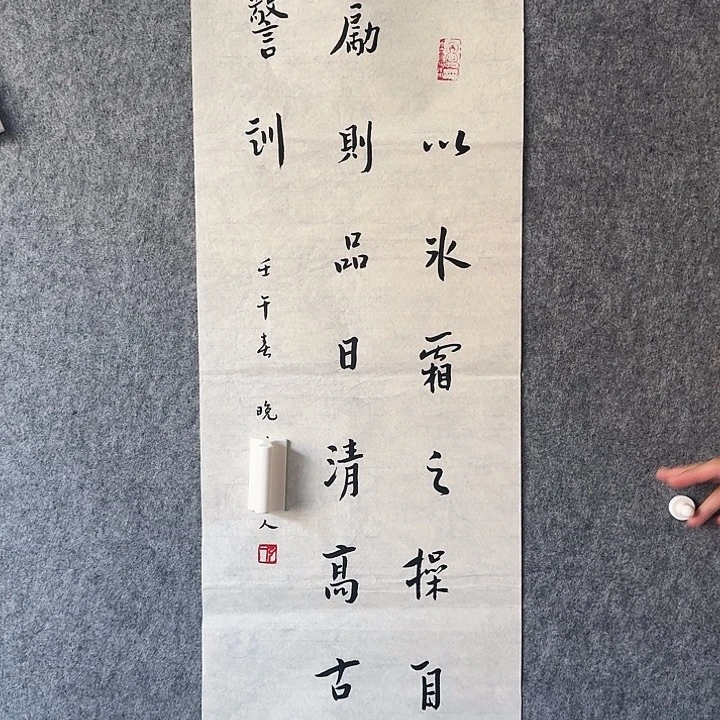 以冰霜之操自
勵則品日清高古
警訓
壬午春 晚
人